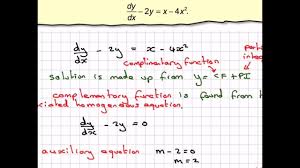 dy/dx − 2y = x − 4x².
dy/dx − 2y = x − 4x²
complimentary function
solution is made up from y = CF + PI
complementary function is found from
homogenous equation.
dy/dx − 2y = 0
auxiliary equation m − 2 = 0
m = 2